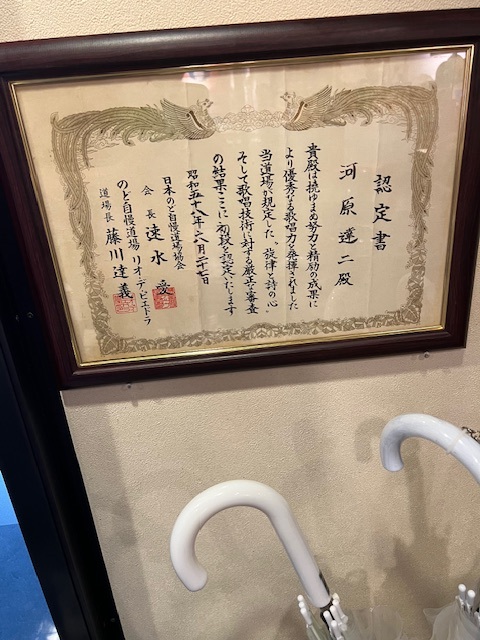 認定書
河原蓮二殿
貴殿は撓ゆまぬ努力と精励の成果に
より優秀なる歌唱力を発揮されました
当道場が規定した、旋律と詩の心、
そして歌唱技術に対する厳正な審査
の結果ここに初段を認定いたします
昭和五十八年八月二十七日
日本のど自慢道場協会
会長 速水愛
のど自慢道場 リオ・デ・ピエトラ
道場長 藤川達義